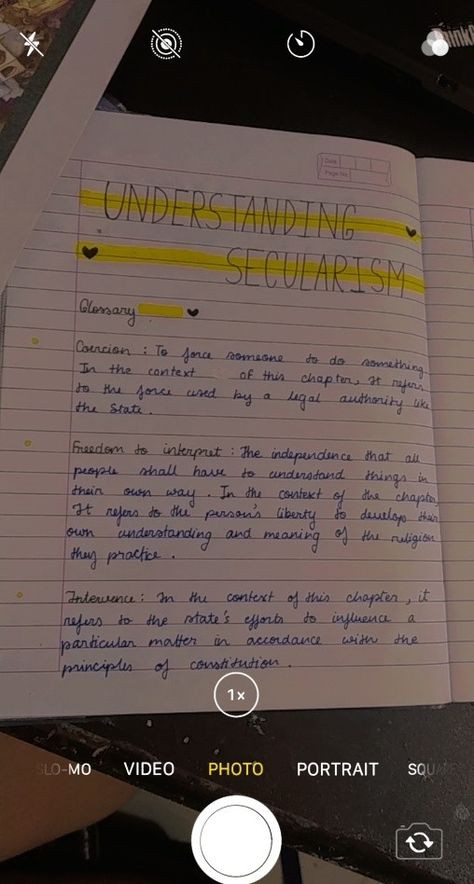 Date
Page No.
UNDERSTANDING
SECULARISM
Glossary
Coercion : To force someone to do something.
In the context of this chapter, It refers
to the force used by a legal authority like
the State.
Freedom to interpret : The independence that all
people shall have to understand things in
their own way. In the context of the chapter,
It refers to the person's liberty to develop their
own understanding and meaning of the religion
they practice.
Intervence : In the context of this chapter, it
refers to the state's efforts to influence a
particular matter in accordance with the
principles of constitution.
1x
SLO-MO VIDEO PHOTO PORTRAIT